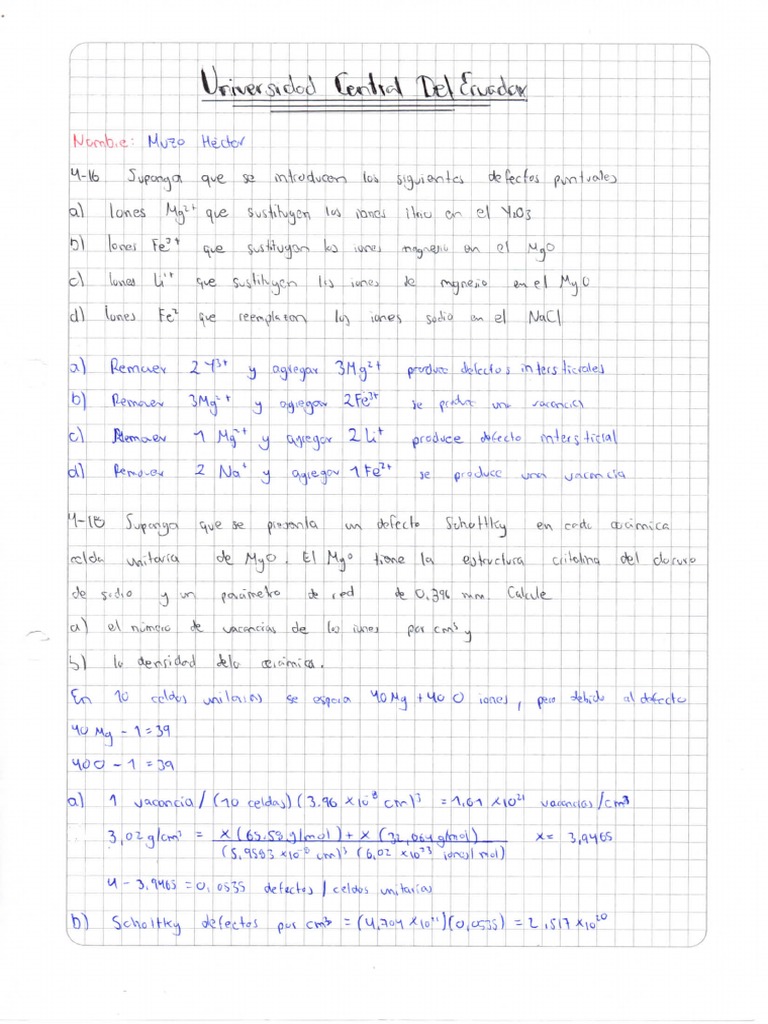 Universidad Central Del Ecuador
Nombre: Muzo Héctor
4-16 Suponga que se introducen los siguientes defectos puntuales
a) Iones Mg²⁺ que sustituyen los iones itrio en el Y₂O₃
b) Iones Fe³⁺ que sustituyan los iones magnesio en el MgO
c) Iones Li¹⁺ que sustituyen los iones de mgnesio en el MgO
d) Iones Fe² que reemplazan los iones sodio en el NaCl
a) Remover 2Y³⁺ y agregar 3Mg²⁺ produce defectos intersticiales
b) Remover 3Mg²⁺ y agregar 2Fe³⁺ se produce una vacancia
c) Remover 1 Mg²⁺ y agregar 2 Li⁺ produce defecto intersticial
d) Remover 2 Na⁺ y agregar 1 Fe²⁺ se produce una vacancia
4-18 Suponga que se presenta un defecto Schottky en cada cecimica
celda unitaria de MgO. El MgO tiene la estructura critalina del cloruro
de sodio y un parámetro de red de 0,396 nm. Calcule
a) el número de vacancias de los iones por cm³ y
b) la densidad dela cerámica.
En 10 celdas unitarias se espera 40Mg + 40 O iones, pero debido al defecto
40 Mg - 1 = 39
40 O - 1 = 39
a) 1 vacancia / (10 celdas) (3.96 x10⁻⁸ cm)³ = 1,61 x10²¹ vacancias/cm³
3,02 g/cm³ = x (65.59 g/mol) + x (32,064 g/mol) x = 3,9465
(5,9583 x10⁻⁸ cm)³ (6,02 x10²³ iones/mol)
4 - 3,9465 = 0,0535 defectos / celdas unitarias
b) Schottky defectos por cm³ = (4,704 x10²¹)(0,0535) = 2,517 x10²⁰